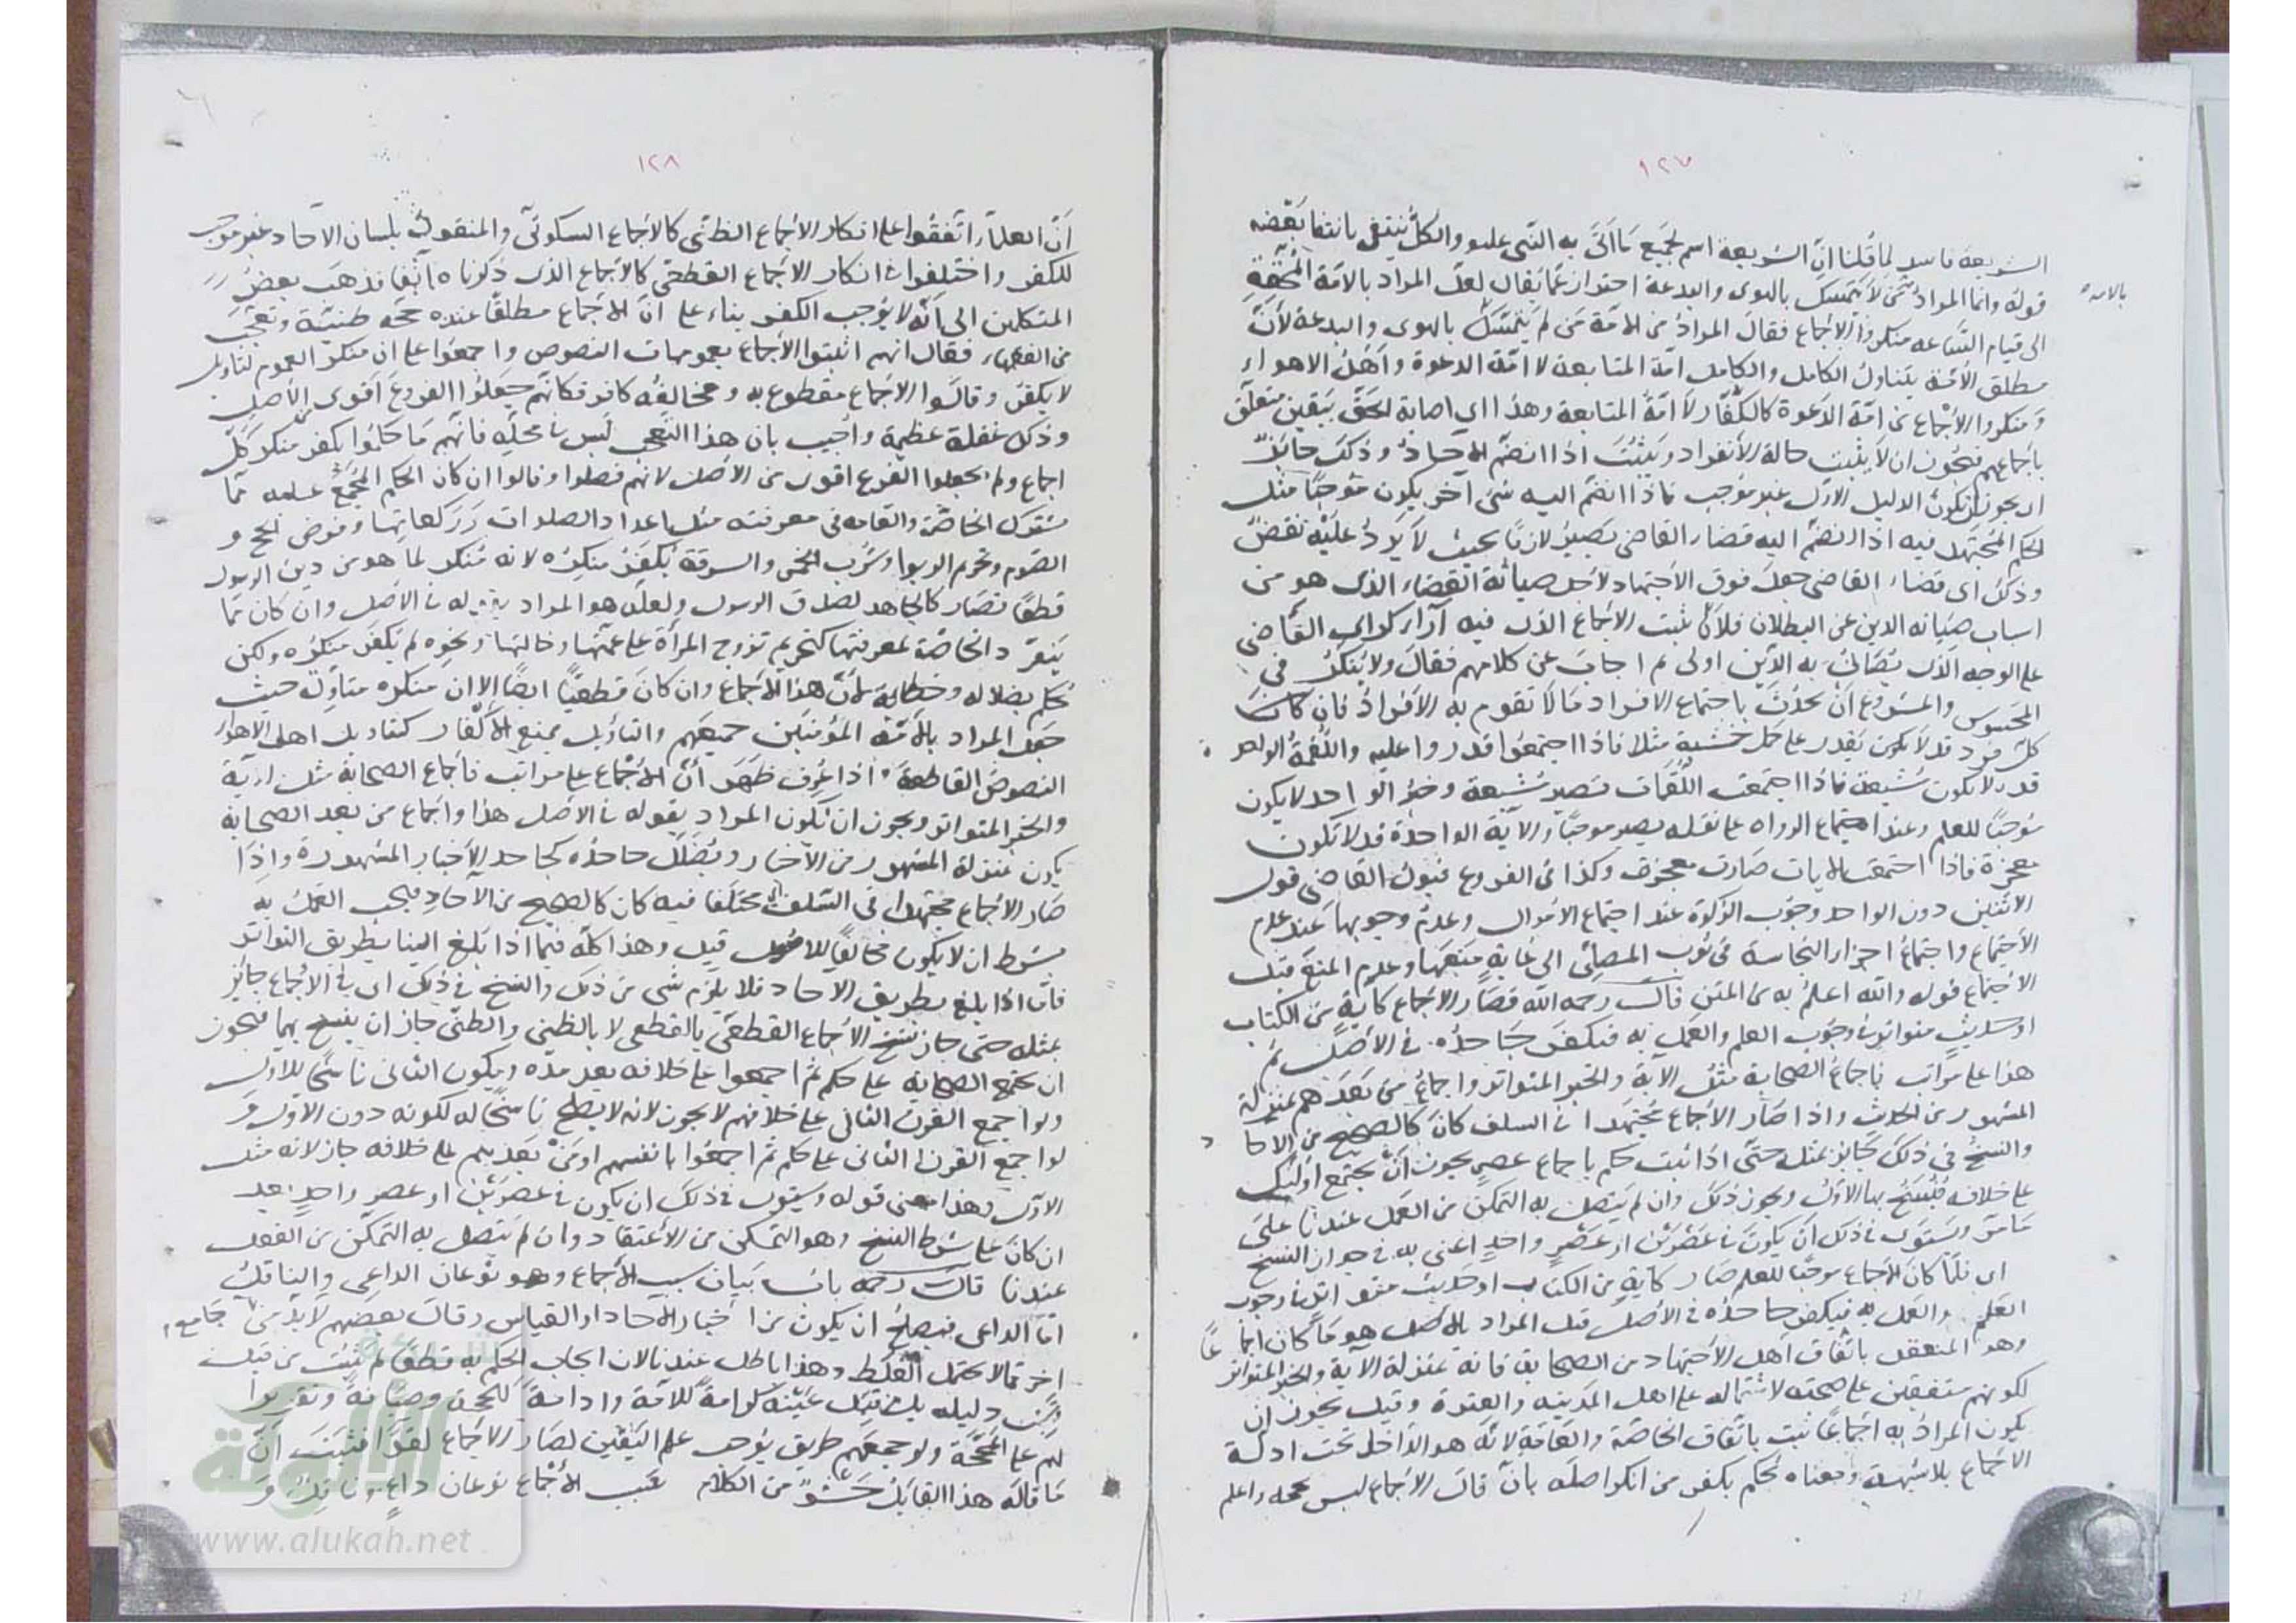 ١٢٧
الشريعة فاسد لما قلنا ان الشريعة اسم لجميع ما اتى به النبي عليه والكل ينتفى بانتفا بعضه
قوله وانما المراد من لا يتمسك بالهوى والبدعة احتراز عما يقال لعل المراد بالامة المحقة
بالامة
الى قيام الساعة منكروا الاجماع فقال المراد من الامة من لم يتمسك بالهوى والبدعة لأن
مطلق الأمة يتناول الكامل والكامل امة المتابعة لا امة الدعوة وأهل الاهواء
ومنكروا الاجماع من امة الدعوة كالكفار لا امة المتابعة وهذا اي اصابة الحق بيقين متعلق
باجماعهم فيجوز ان لا يثبت حالة الانفراد ويثبت اذا انضم الاحاد وذلك جائز
اي يجوز ان يكون الدليل الاول غير موجب فاذا انضم اليه شئ آخر يكون موجبا مثل
الحكم المجتهد فيه اذا انضم اليه قضاء القاضي يصير لازما بحيث لا يرد عليه نقض
وذلك اى قضاء القاضي جعل فوق الاجتهاد لاجل صيانة القضاء الذى هو من
اسباب صيانة الدين عن البطلان فلأن يثبت الاجماع الذى فيه آراء كرأي القاضي
على الوجه الذى يصان به الدين اولى ثم اجاب عن كلامهم فقال ولا ينكر فى
المحسوس والمشروع ان يحدث باجتماع الافراد ما لا تقوم به الافراد فان كان
كل فرد قد لا يكون يقدر على حمل خشبة مثلا فاذا اجتمعوا قدروا عليه واللقمة الواحدة
قد لا تكون مشبعة فاذا اجتمعت اللقمات تصير مشبعة وخبر الواحد لا يكون
موجبا للعلم وعند اجتماع الرواه على نقله يصير موجبا والآية الواحدة قد لا تكون
معجزة فاذا اجتمعت الايات صارت معجزة وكذا فى الفروع قبول القاضى قول
الاثنين دون الواحد وجوب الزكوة عند اجتماع الاموال وعدم وجوبها عند عدم
الاجتماع واجتماع اجزاء النجاسة فى ثوب المصلى الى غاية منعها وعدم المنع قبل
الاجتماع قوله والله اعلم به من المتن قال رحمه الله فصار الاجماع كآية من الكتاب
او حديث متواتر فى وجوب العلم والعمل به فيكفر جاحده فى الاصل ثم
هذا على مراتب فاجماع الصحابة مثل الآية والخبر المتواتر واجماع من بعدهم بمنزلة
المشهور من الحديث واذا صار الاجماع مجتهدا فى السلف كان كالصحيح من الاحاد
والنسخ فى ذلك جائز بمثله حتى اذا ثبت حكم باجماع عصر يجوز ان يجتمع اولئك
على خلافه فينسخ بها الاول ويجوز ذلك وان لم يتصل به التمكن من العمل عندنا على
ما مر ويستوى فى ذلك ان يكون فى عصرين او عصر واحد اعنى به فى جواز النسخ
اى فلما كان الاجماع موجبا للعلم صار كآية من الكتاب او حديث متواتر فى وجوب
العلم والعمل به فيكفر جاحده فى الاصل قيل المراد بالاصل هو ما كان اجماعا
وهو المنعقد باتفاق اهل الاجتهاد من الصحابة فانه بمنزلة الآية والخبر المتواتر
لكونهم متفقين على صحته لاشتماله على اهل المدينة والعترة وقيل يجوز ان
يكون المراد به اجماعا ثبت باتفاق الخاصة والعامة لانه هو الداخل تحت ادلة
الاجماع بلا شبهة ومعناه يحكم بكفر من انكر اصله بان قال الاجماع ليس بحجة واعلم
١٢٨
أن العلماء اتفقوا على انكار الاجماع الظنى كالاجماع السكوتى والمنقول بلسان الآحاد غير موجب
للكفر واختلفوا فى انكار الاجماع القطعى كالاجماع الذى ذكرناه آنفا فذهب بعض
المتكلمين الى أنه لا يوجب الكفر بناء على ان الاجماع مطلقا عنده حجة ظنية وتعجب
من الفقهاء فقال انهم اثبتوا الاجماع بعمومات النصوص واجمعوا على ان منكر العموم لتأويل
لا يكفر وقالوا الاجماع مقطوع به ومخالفه كافر فكأنهم جعلوا الفروع اقوى من الأصل
وذلك غفلة عظيمة واجيب بان هذا التعجب ليس فى محله فانهم ما حكموا بكفر منكر كل
اجماع ولم يجعلوا الفرع اقوى من الاصل لانهم فصلوا وقالوا ان كان الحكم المجمع عليه مما
يشترك الخاصة والعامة فى معرفته مثل اعداد الصلوات وركعاتها وفرض الحج و
الصوم وتحريم الربوا وشرب الخمر والسرقة يكفر منكره لانه منكر لما هو من دين الرسول
قطعا فصار كالجاحد لصدق الرسول ولعله هو المراد بقوله فى الاصل وان كان مما
ينفرد الخاصة لمعرفتها كتحريم تزوج المرأة على عمتها وخالتها ونحوه لم يكفر منكره ولكن
يحكم بضلاله وخطائه لأن هذا الاجماع وان كان قطعيا ايضا الا ان منكره متأول حيث
جعل المراد بالأمة المؤمنين جميعهم والتأويل يمنع الاكفار كتأويل اهل الاهواء
النصوص القاطعة اذا عرف ظهر أن الاجماع على مراتب فاجماع الصحابة مثل الآية
والخبر المتواتر ويجوز ان يكون المراد بقوله فى الاصل هذا واجماع من بعد الصحابة
يكون بمنزلة المشهور من الأخبار ويضلل جاحده كجاحد الأخبار المشهورة واذا
صار الاجماع مجتهدا فى السلف اى مختلفا فيه كان كالصحيح من الآحاد فيجب العمل به
بشرط ان لا يكون مخالفا للاصول قيل وهذا كله فيما اذا بلغ الينا بطريق التواتر
فاما اذا بلغ بطريق الاحاد فلا يلزم شئ من ذلك والنسخ فى ذلك اى فى الاجماع جائز
بمثله حتى جاز نسخ الاجماع القطعى بالقطعى لا بالظنى والظنى جاز ان ينسخ بهما فيجوز
ان يجتمع الصحابة على حكم ثم اجمعوا على خلافه بعد مدة ويكون الثانى ناسخا للاول
ولو اجمع القرن الثانى على خلافهم لا يجوز لانه لا يصلح ناسخا له لكونه دون الاول و
لو اجمع القرن الثانى على حكم ثم اجمعوا بانفسهم او من بعدهم على خلافه جاز لانه مثل
الاول وهذا معنى قوله ويستوى فى ذلك ان يكون فى عصرين او عصر واحد بعد
ان كان على شرط النسخ وهو التمكن من الاعتقاد وان لم يتصل به التمكن من الفعل
عندنا قال رحمه باب بيان سبب الاجماع وهو نوعان الداعى والناقل
اما الداعى فيصلح ان يكون من اخبار الاحاد او القياس وقال بعضهم لا بد من جامع
اخر مما لا يحتمل الغلط وهذا باطل عندنا لان ايجاب الحكم به قطعا لم يثبت من قبل
دليله بل من قبل عينه كرامة للامة وادامة للحجة وصيانة وتقريرا
لهم على المحجة ولو جمعهم طريق يوجب علم اليقين لصار الاجماع لغوا فثبت ان
ما قاله هذا القائل حشو من الكلام سبب الاجماع نوعان داع وناقل و
شبكة
الألوكة
www.alukah.net